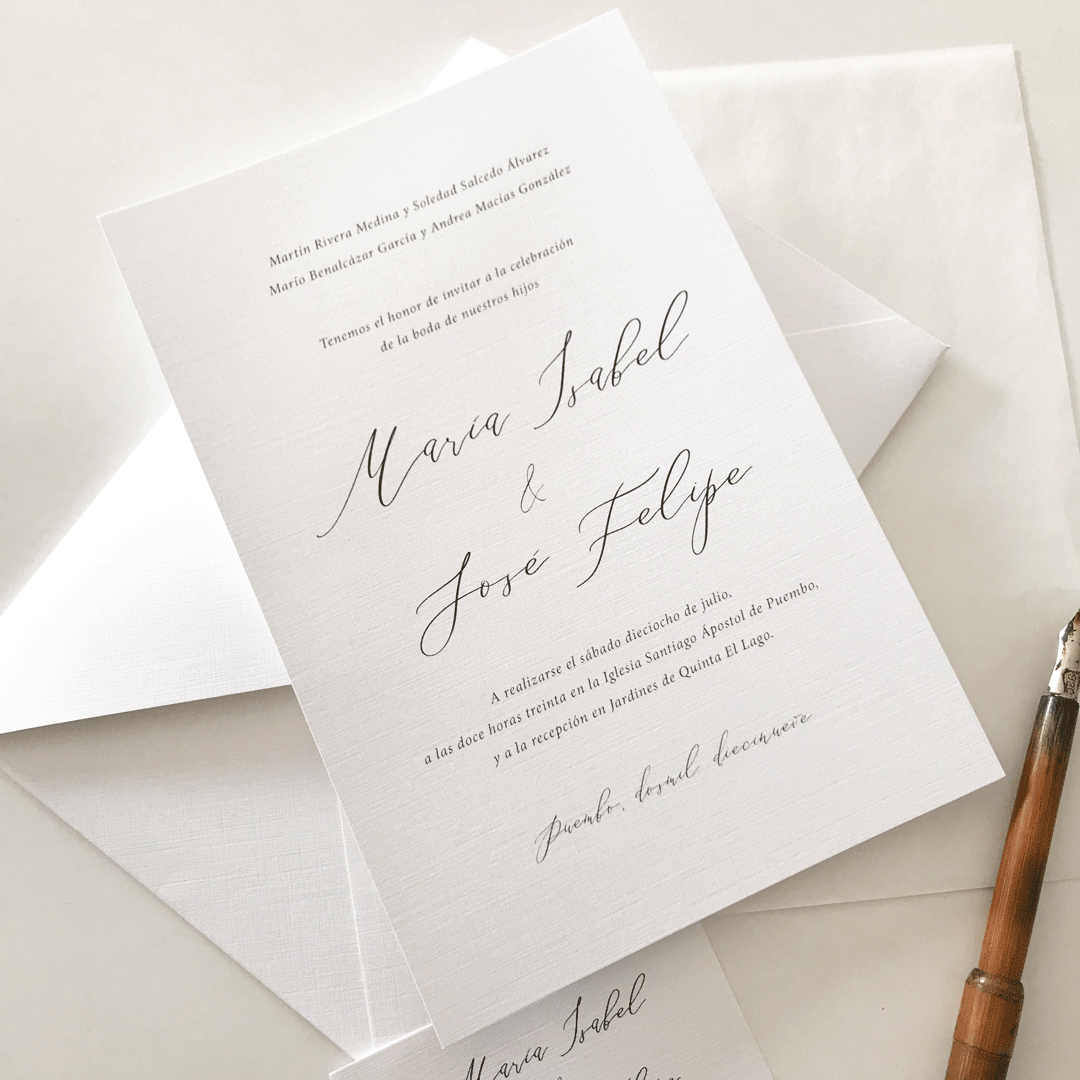 Martín Rivera Medina y Soledad Salcedo Álvarez
Mario Benalcázar García y Andrea Macías González
Tenemos el honor de invitar a la celebración
de la boda de nuestros hijos
María Isabel
&
José Felipe
A realizarse el sábado dieciocho de julio,
a las doce horas treinta en la Iglesia Santiago Ápostol de Puembo,
y a la recepción en Jardines de Quinta El Lago.
Puembo, dosmil diecinueve
María Isabel